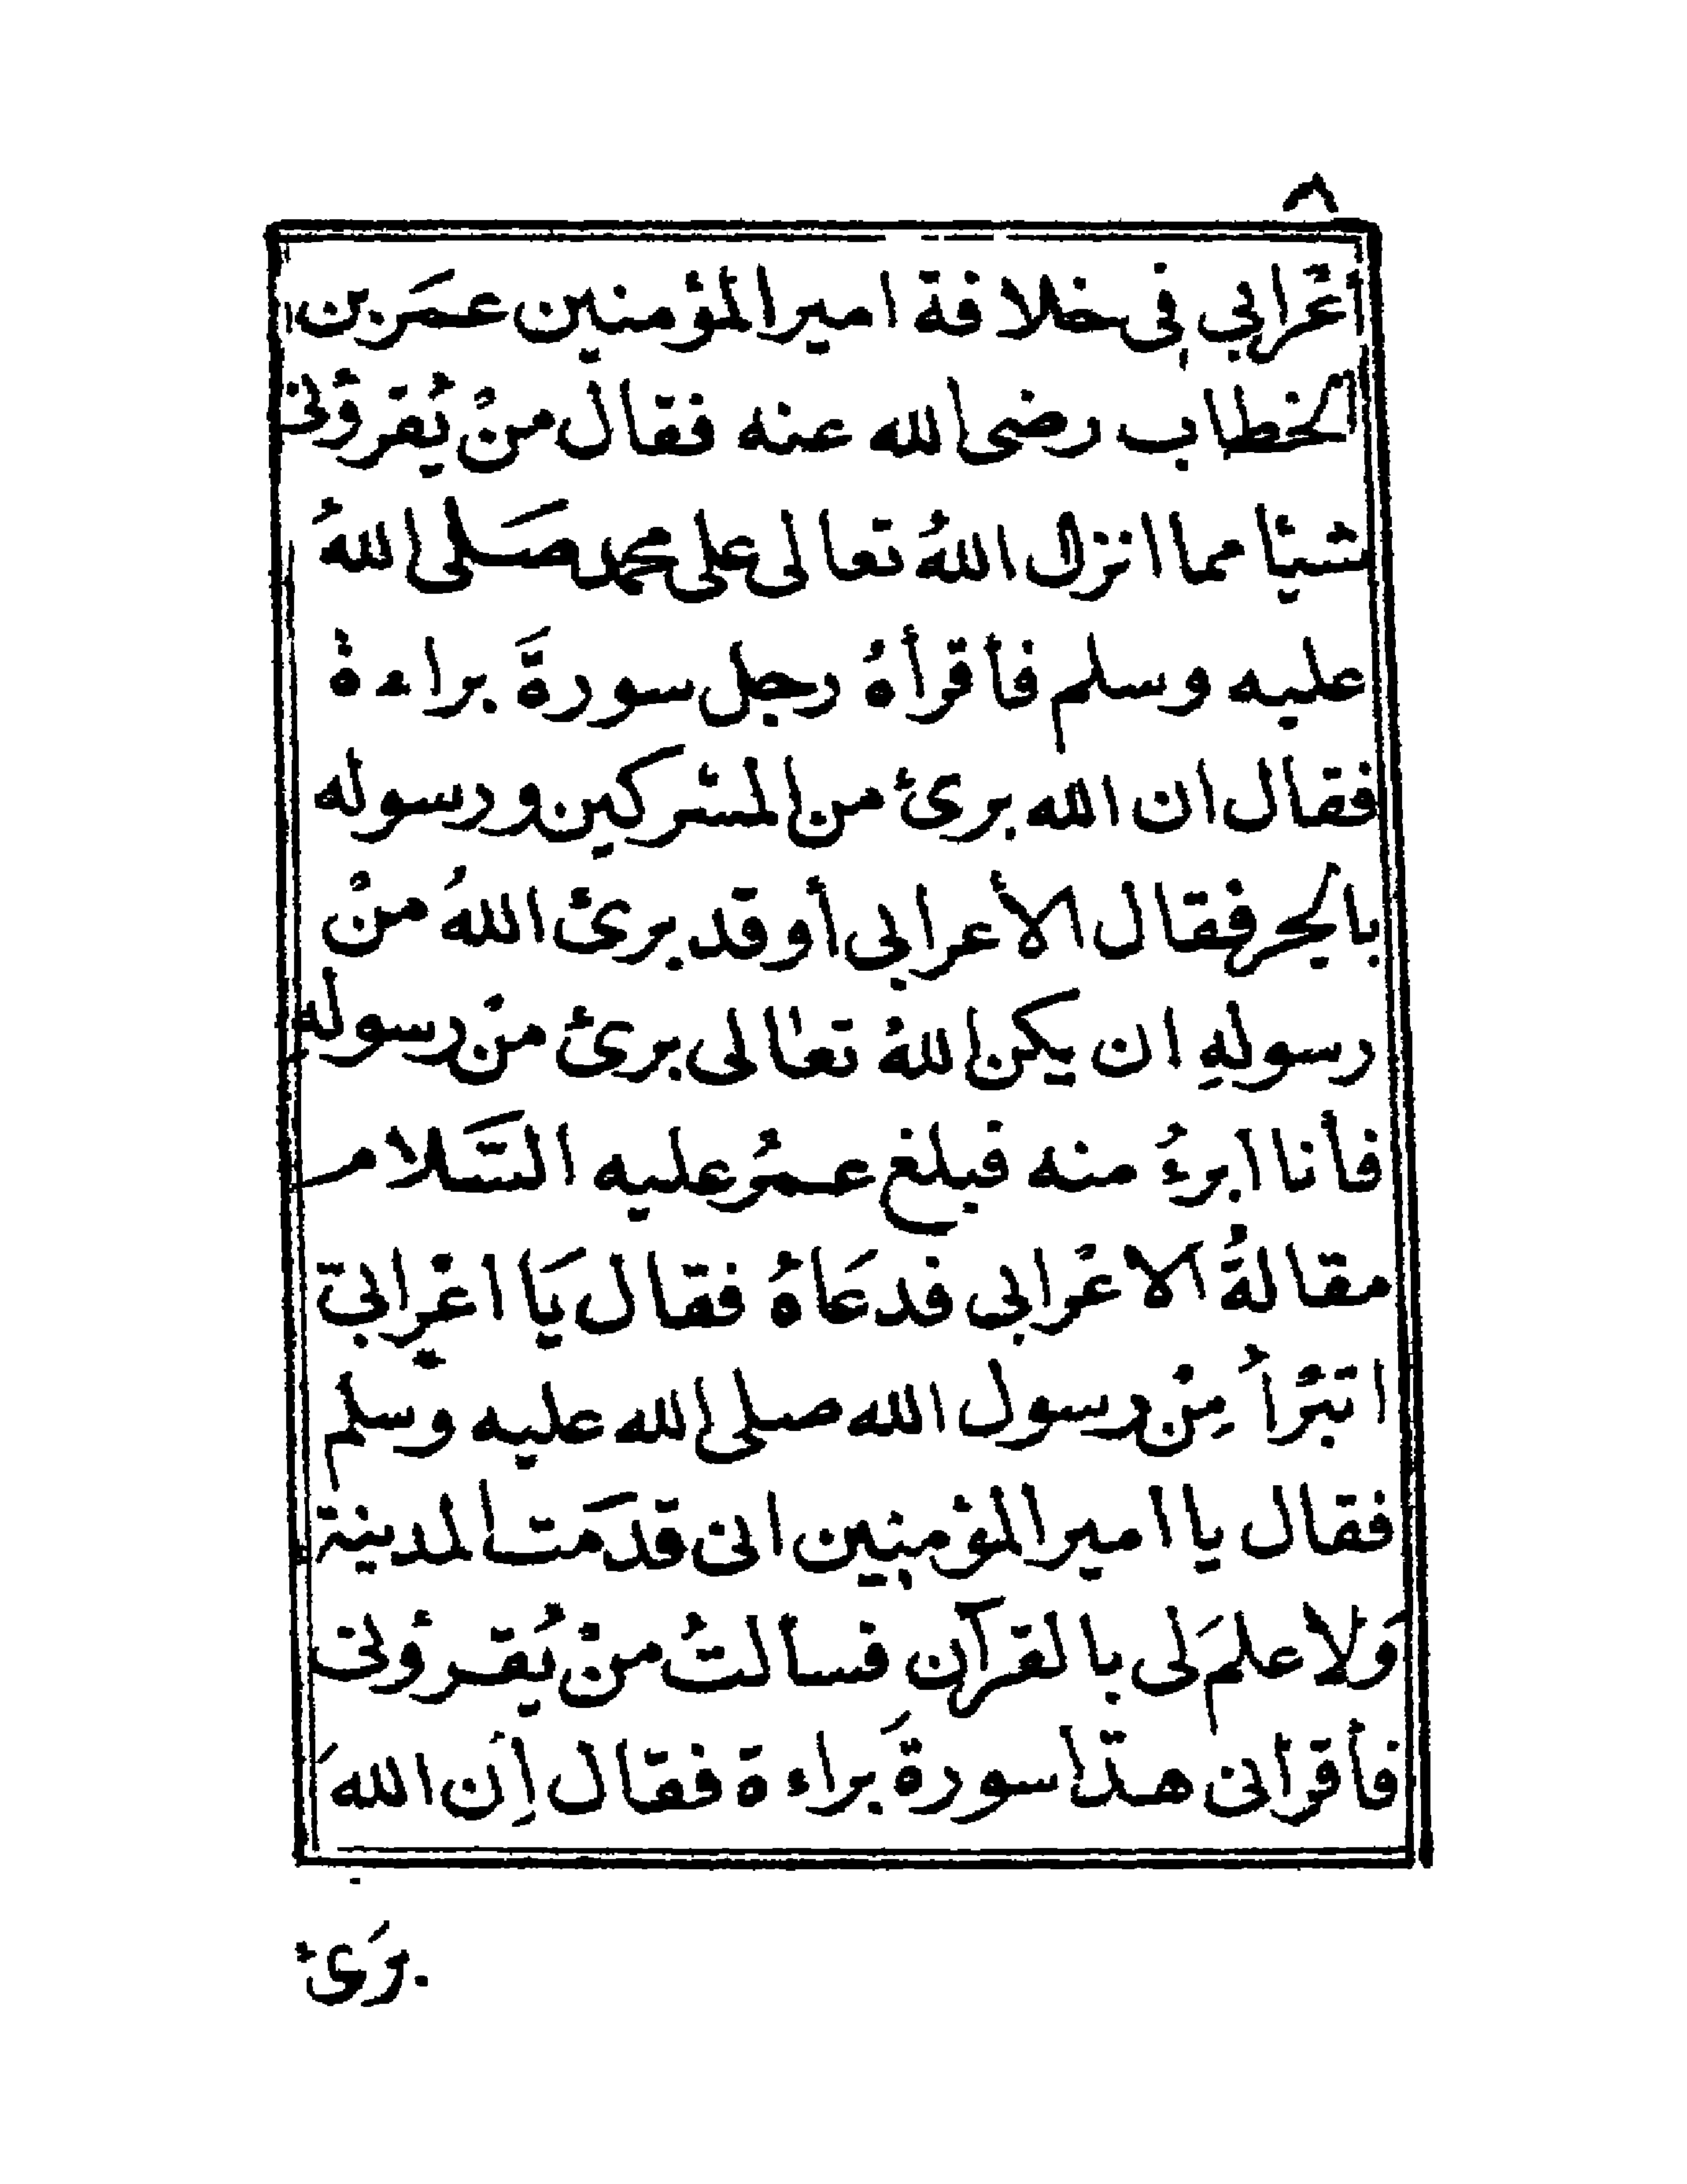 ٨
أعْرابي في خلافة امير المؤمنين عمَر بن
الخطاب رضى الله عنه فقال منْ يُقرؤنى
شيئا مما انزل اللهُ تعالى على محمد صَلى اللهُ
عليه وسلم فأقرأهُ رجل سورةَ براءة
فقال ان الله برئ من المشركين ورسوله
بالجر فقال الأعرابى أو قد برئ اللهُ منْ
رسولهِ ان يكن اللهُ تعالى برئ منْ رسوله
فأنا ابرءُ منه فبلغ عمرُ عليه السَّلام
مقالةُ الاعْرابى فدعَاهُ فقال يَا اعْرابىّ
اتبْرأُ مِنْ رسول الله صلى الله عليه وسلم
فقال يا امير المؤمنين انى قدمَت المدينة
وَلا علمَ لى بالقرآن فسألتُ منْ يُقرؤنى
فأقرأنى هذا سورةَ براءة فقال إن اللهَ
برَئ